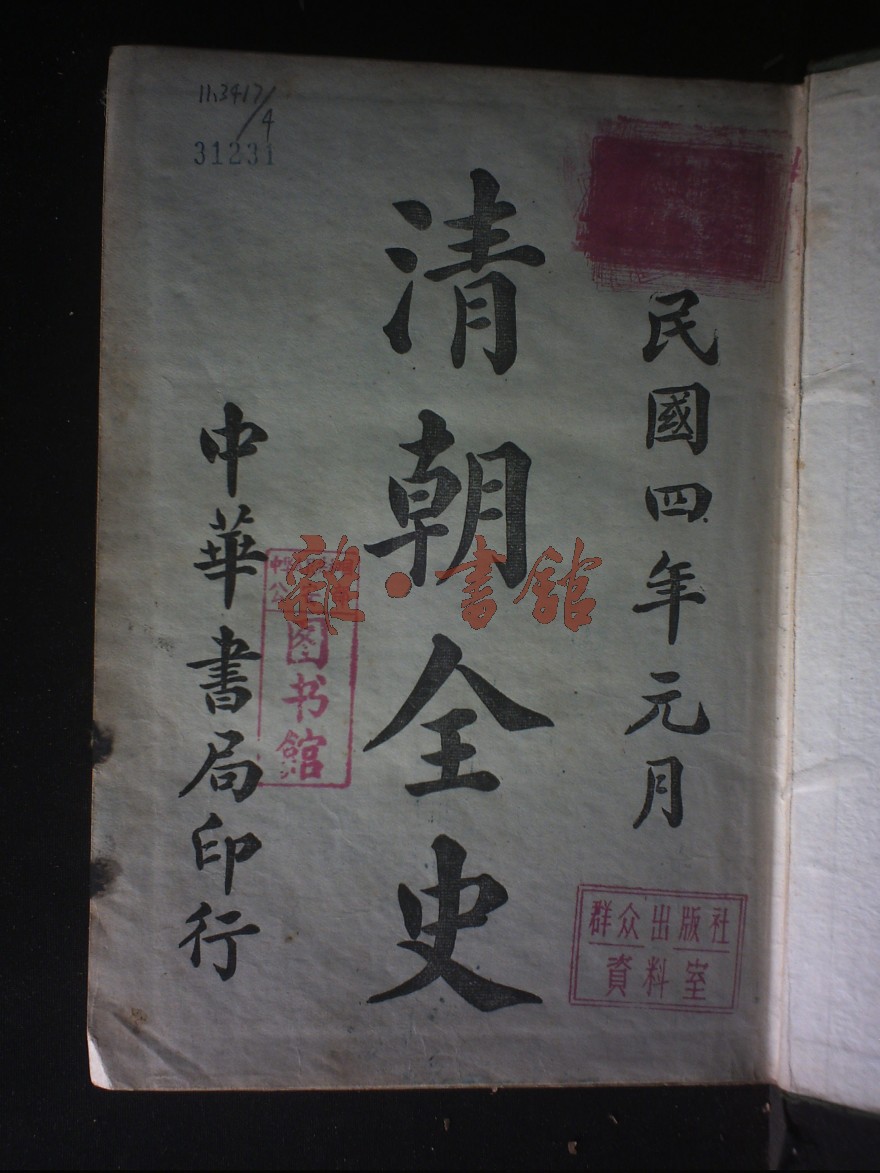 11.3417/4
31231
民國四年元月
清朝全史
中華書局印行
雜·書館
图书馆
群众出版社
資料室